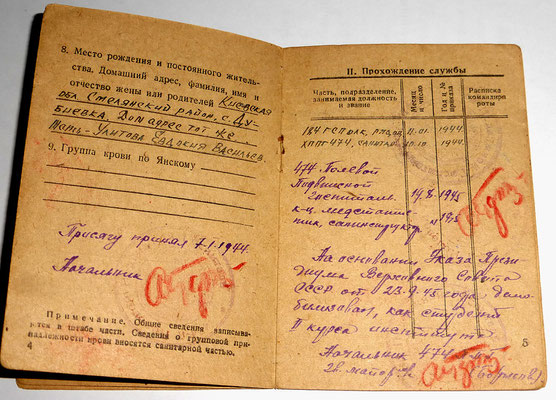 8. Место рождения и постоянного житель-
ства. Домашний адрес, фамилия, имя и
отчество жены или родителей Киевская
обл Смелянский район, с. Ду-
биевка. Дом адрес тот же
Мать - Евдокия Васильев.
9. Группа крови по Янскому
Присягу принял 7.1.1944.
Начальник
Примечание. Общие сведения записыва-
ются в штабе части. Сведения о групповой при-
надлежности крови вносятся санитарной частью.
4
II. Прохождение службы
Часть, подразделение, занимаемая должность и звание
Месяц и число
Год и № приказа
Расписка командира роты
184 1944
ХППГ 474, санитар 10.10 1944.
474 Полевой
Подвижной
Госпиталь 14.8 1945
санинструктор
На основании Указа Прези-
диума Верховного Совета
СССР от 23-9-45 года демо-
билизован, как студент
II курса института
Начальник 474
гв. майор м/с
5